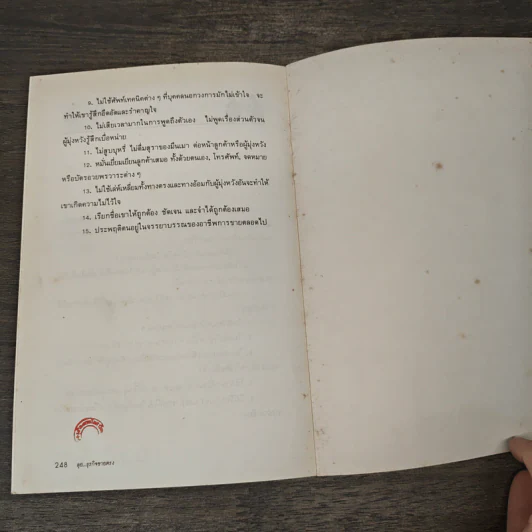 9. ไม่ใช้ศัพท์เทคนิคต่าง ๆ ที่บุคคลนอกวงการมักไม่เข้าใจ จะ
ทำให้เขารู้สึกอึดอัดและรำคาญใจ
10. ไม่เสียเวลามากในการพูดถึงตัวเอง ไม่พูดเรื่องส่วนตัวจน
ผู้มุ่งหวังรู้สึกเบื่อหน่าย
11. ไม่สูบบุหรี่ ไม่ดื่มสุราของมึนเมา ต่อหน้าลูกค้าหรือผู้มุ่งหวัง
12. หมั่นเยี่ยมเยียนลูกค้าเสมอ ทั้งด้วยตนเอง, โทรศัพท์, จดหมาย
หรือบัตรอวยพรวาระต่าง ๆ
13. ไม่ใช้เล่ห์เหลี่ยมทั้งทางตรงและทางอ้อมกับผู้มุ่งหวังอันจะทำให้
เขาเกิดความไม่ไว้ใจ
14. เรียกชื่อเขาให้ถูกต้อง ชัดเจน และจำได้ถูกต้องเสมอ
15. ประพฤติตนอยู่ในจรรยาบรรณของอาชีพการขายตลอดไป
248 ธุรกิจขายตรง